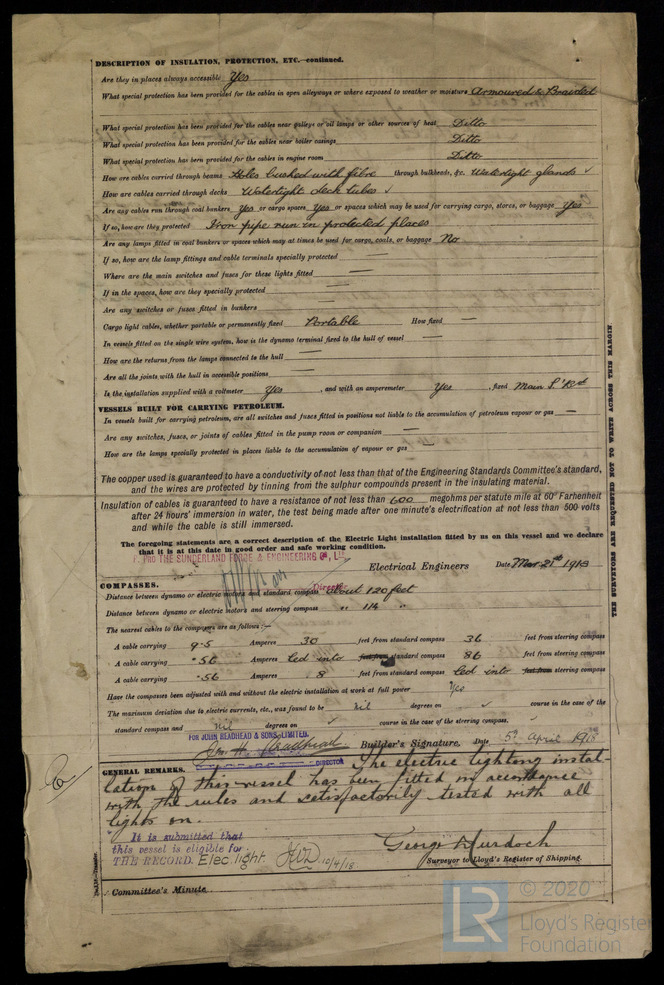 DESCRIPTION OF INSULATION, PROTECTION, ETC.—continued.
Are they in places always accessible Yes
What special protection has been provided for the cables in open alleyways or where exposed to weather or moisture Armoured & Braided
What special protection has been provided for the cables near galleys or oil lamps or other sources of heat Ditto
What special protection has been provided for the cables near boiler casings Ditto
What special protection has been provided for the cables in engine room Ditto
How are cables carried through beams Holes bushed with fibre through bulkheads, &c. Watertight glands ✓
How are cables carried through decks Watertight deck tubes ✓
Are any cables run through coal bunkers Yes or cargo spaces Yes or spaces which may be used for carrying cargo, stores, or baggage Yes
If so, how are they protected Iron pipe run in protected places
Are any lamps fitted in coal bunkers or spaces which may at times be used for cargo, coals, or baggage No
If so, how are the lamp fittings and cable terminals specially protected —
Where are the main switches and fuses for these lights fitted —
If in the spaces, how are they specially protected —
Are any switches or fuses fitted in bunkers —
Cargo light cables, whether portable or permanently fixed Portable How fixed —
In vessels fitted on the single wire system, how is the dynamo terminal fixed to the hull of vessel —
How are the returns from the lamps connected to the hull —
Are all the joints with the hull in accessible positions —
Is the installation supplied with a voltmeter Yes , and with an amperemeter Yes , fixed Main S'Bd
VESSELS BUILT FOR CARRYING PETROLEUM.
In vessels built for carrying petroleum, are all switches and fuses fitted in positions not liable to the accumulation of petroleum vapour or gas —
Are any switches, fuses, or joints of cables fitted in the pump room or companion —
How are the lamps specially protected in places liable to the accumulation of vapour or gas —
The copper used is guaranteed to have a conductivity of not less than that of the Engineering Standards Committee's standard,
and the wires are protected by tinning from the sulphur compounds present in the insulating material.
Insulation of cables is guaranteed to have a resistance of not less than 600 megohms per statute mile at 60° Farhenheit
after 24 hours' immersion in water, the test being made after one minute's electrification at not less than 500 volts
and while the cable is still immersed.
The foregoing statements are a correct description of the Electric Light installation fitted by us on this vessel and we declare
that it is at this date in good order and safe working condition.
P. PRO THE SUNDERLAND FORGE & ENGINEERING Co, Ltd
Electrical Engineers Date Mar 21st 1918
Director
COMPASSES.
Distance between dynamo or electric motors and standard compass about 120 feet
Distance between dynamo or electric motors and steering compass " 114 "
The nearest cables to the compasses are as follows:—
A cable carrying 9.5 Amperes 30 feet from standard compass 36 feet from steering compass
A cable carrying .56 Amperes led into feet from standard compass 86 feet from steering compass
A cable carrying .56 Amperes 8 feet from standard compass led into feet from steering compass
Have the compasses been adjusted with and without the electric installation at work at full power Yes
The maximum deviation due to electric currents, etc., was found to be nil degrees on ✓ course in the case of the
standard compass and nil degrees on ✓ course in the case of the steering compass. ✓
FOR JOHN READHEAD & SONS, LIMITED.
Readhead Builder's Signature. Date 5th April 1918
DIRECTOR
GENERAL REMARKS. The electric lighting instal-
lation of this vessel has been fitted in accordance
with the rules and satisfactorily tested with all
lights on.
It is submitted that
this vessel is eligible for
THE RECORD. Elec. light. 10/4/18
George Murdoch
Surveyor to Lloyd's Register of Shipping.
Committee's Minute
THE SURVEYORS ARE REQUESTED NOT TO WRITE ACROSS THIS MARGIN
LR
© 2020
Lloyd's Register
Foundation